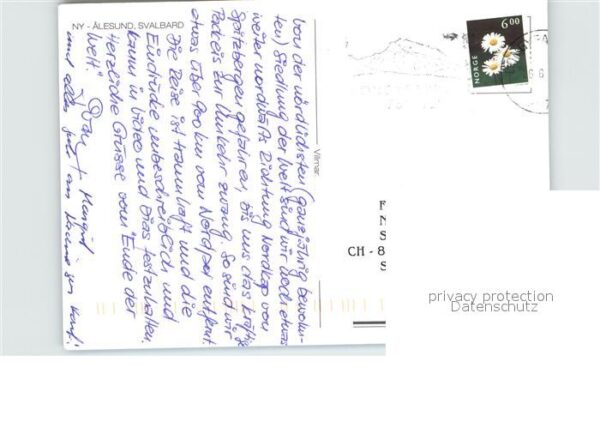 NY - ÅLESUND, SVALBARD
Von der nördlichsten (ganzjährig bewohn-
ten) Siedlung der Welt sind wir noch etwas
weiter nordwärts Richtung Nordkap von
Spitzbergen gefahren, bis uns das kräftige
Packeis zur Umkehr zwang. So sind wir
etwa über 900 km vom Nordpol entfernt.
Die Reise ist traumhaft und die
Eindrücke unbeschreiblich und
kaum in Video und Dias festzuhalten.
Herzliche Grüsse vom "Ende der
Welt".
+ Margrit
und alles
Vilmar
6 00
NORGE
F
N
S
CH - 8
S
privacy protection
Datenschutz